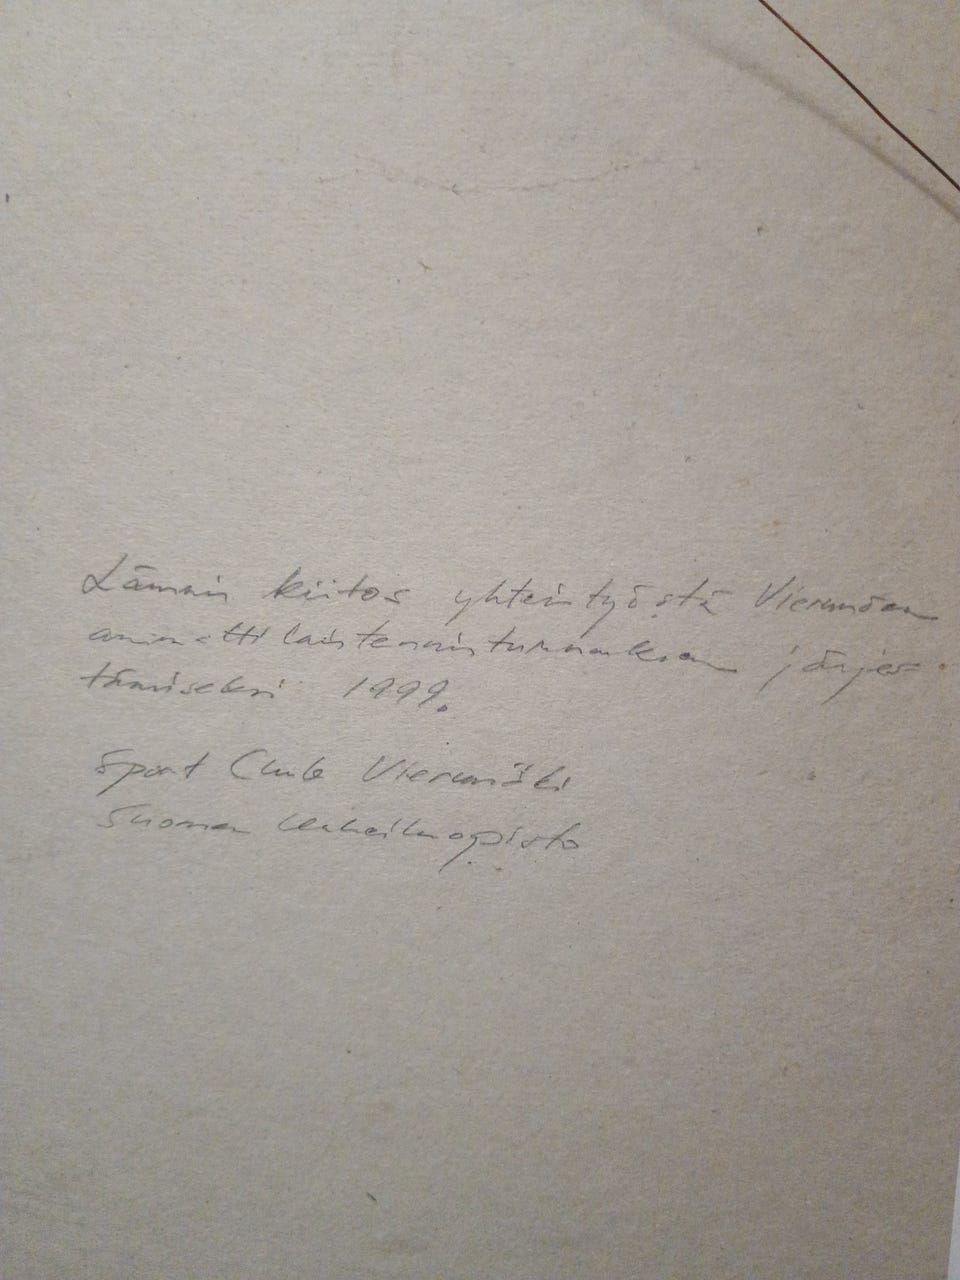 Lämmin kiitos yhteistyöstä Vierumäen
ammattilaistennisturnauksen järjes-
tämiseksi 1999.
Sport Club Vierumäki
Suomen Urheiluopisto